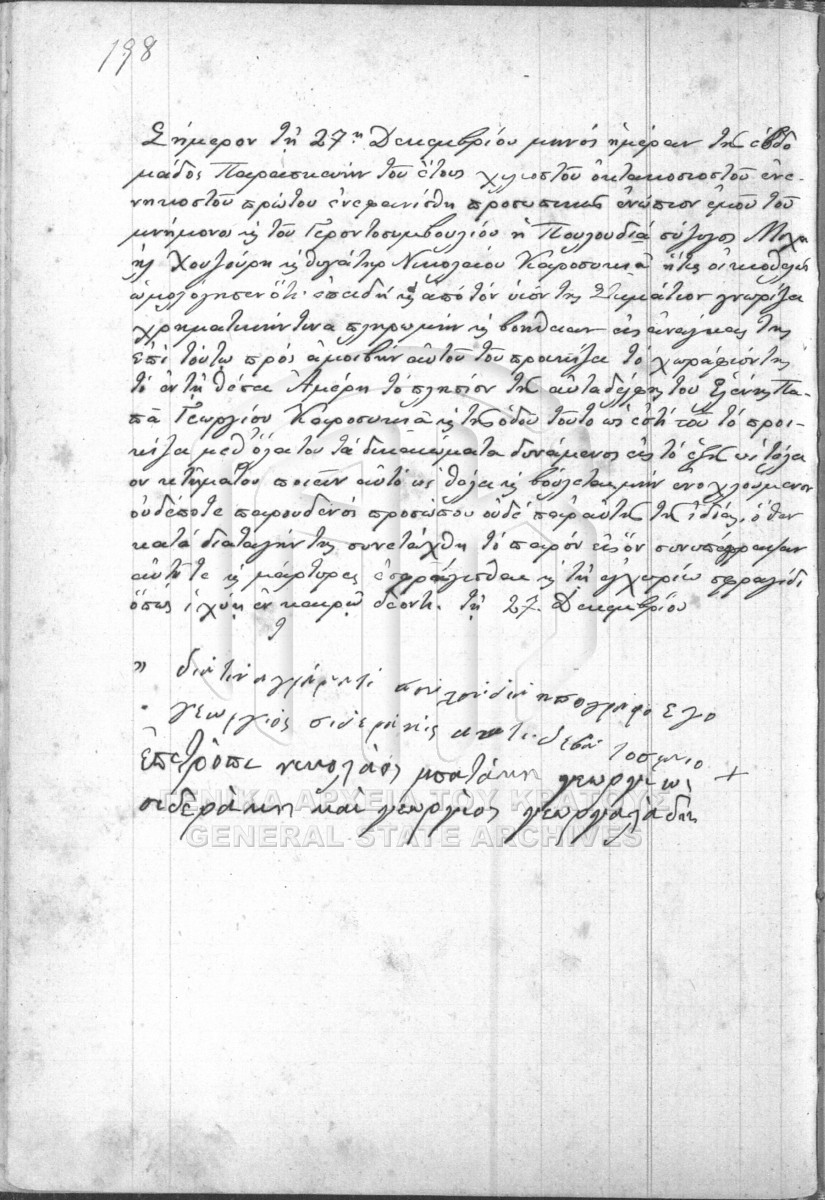 198
Σήμερον τῇ 27ῃ Δεκεμβρίου μηνός ἡμέραν τῆς ἑβδο
μάδος Παρασκευήν τοῦ ἔτους χιλιοστοῦ ὀκτακοσιοστοῦ ἐνε-
νηκοστοῦ πρώτου ἐνεφανίσθη προσωπικῶς ἐνώπιον ἐμοῦ τοῦ
μνήμονα κ τοῦ Γεροντοσυμβουλίου ἡ Πουλουδιά σύζυγος Μιχα
ήλ Χουζούρη κ θυγάτηρ Νικολαίου Καροσυκιᾶ ἥτις οἰκοθελῶς
ὡμολόγησεν ὅτι ἐπειδή κ ἀπό τόν υἱόν της Σταμάτιον γνωρίζει
χρηματικήν τινα πληρωμήν κ βοήθειαν εἰς ἀνάγκας της
ἐπί τούτῳ πρός ἀμοιβήν αὐτοῦ τοῦ προικίζει τό χωράφιόν της
τό ἐν τῇ θέσει Ἀμέρη τό πλησίον τῆς αὐταδέλφης του Ἑλένης Πα-
πᾶ Γεωργίου Καροσυκιᾶ κ τῆς ὁδοῦ τοῦτο ὡς ἐστί τοῦ τό προι-
κίζει μεθ' ὅλα του τά δικαιώματα δυνάμενος εἰς τό ἑξῆς ὡς τέλει
ον κτῆμα του ποιεῖν αὐτό ὡς θέλει κ βούλεται μήν ἐνοχλούμενον
οὐδέποτε παρ οὐδενός προσώπου οὐδέ παρ αὐτῆς τῆς ἰδίας, ὅθεν
κατά διαταγήν της συνετάχθη τό παρόν εἰς ὅν συνυπέγραψαν
αὐτή τε κ μάρτυρες ἐσφράγισθαι κ τῇ ἐγχωρίῳ σφραγίδι
ὅπως ἰσχύῃ ἐν καιρῷ δέοντι. τῇ 27 Δεκεμβρίου
διά την αγράματι πουλουδιά ηπογράφο εγο
γεωργιός σιδεράκις
ἐπετρὸπι νικολάος μπατάκη γεωργιως +
σιδεράκης καὶ γεώργιος γεωργαλάδης
ΓΕΝΙΚΑ ΑΡΧΕΙΑ ΤΟΥ ΚΡΑΤΟΥΣ
GENERAL STATE ARCHIVES